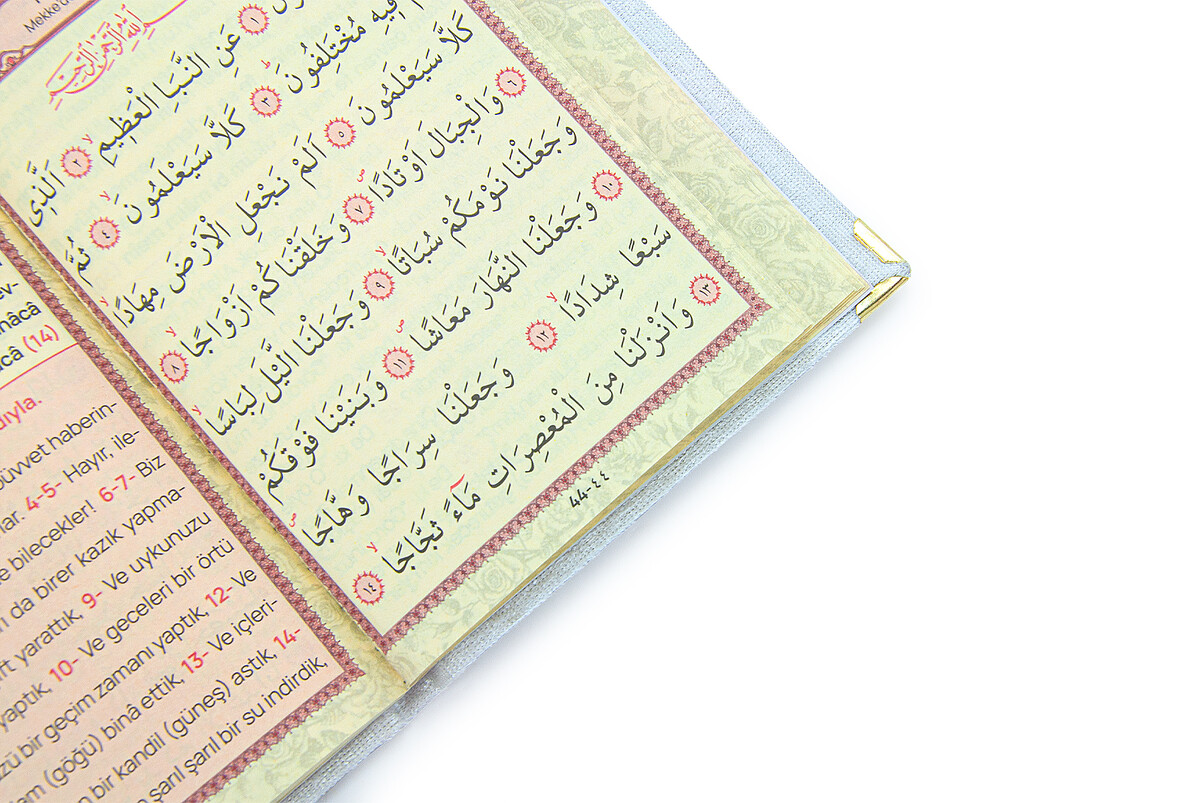 بِسْمِ اللّٰهِ الرَّحْمٰنِ الرَّحِيمِ
١ عَنِ النَّبَاِ الْعَظِيمِۙ ٢ اَلَّذِى
فِيهِ مُخْتَلِفُونَۜ ٣ كَلَّا سَيَعْلَمُونَۙ ٤ ثُمَّ
كَلَّا سَيَعْلَمُونَ ٥ اَلَمْ نَجْعَلِ الْاَرْضَ مِهَادًاۙ
٦ وَالْجِبَالَ اَوْتَادًاۖ ٧ وَخَلَقْنَاكُمْ اَزْوَاجًاۙ ٨
وَجَعَلْنَا نَوْمَكُمْ سُبَاتًاۙ ٩ وَجَعَلْنَا الَّيْلَ لِبَاسًاۙ
١٠ وَجَعَلْنَا النَّهَارَ مَعَاشًاۖ ١١ وَبَنَيْنَا فَوْقَكُمْ
سَبْعًا شِدَادًاۙ ١٢ وَجَعَلْنَا سِرَاجًا وَهَّاجًاۖ
١٣ وَاَنْزَلْنَا مِنَ الْمُعْصِرَاتِ مَٓاءً ثَجَّاجًاۙ ١٤
44-٤٤
(14)
büvvet haberin-
4-5- Hayır, ile-
bilecekler! 6-7- Biz
da birer kazık yapma-
yarattık, 9- Ve uykunuzu
yaptık, 10- Ve geceleri bir örtü
bir geçim zamanı yaptık, 12- Ve
(göğü) binâ ettik, 13- Ve içleri-
bir kandil (güneş) astık, 14-
şarıl şarıl bir su indirdik,